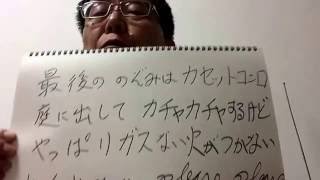 最後の のぞみは カセットコンロ
庭に出して カチャカチャするけど
やっぱり ガスない 火がつかない